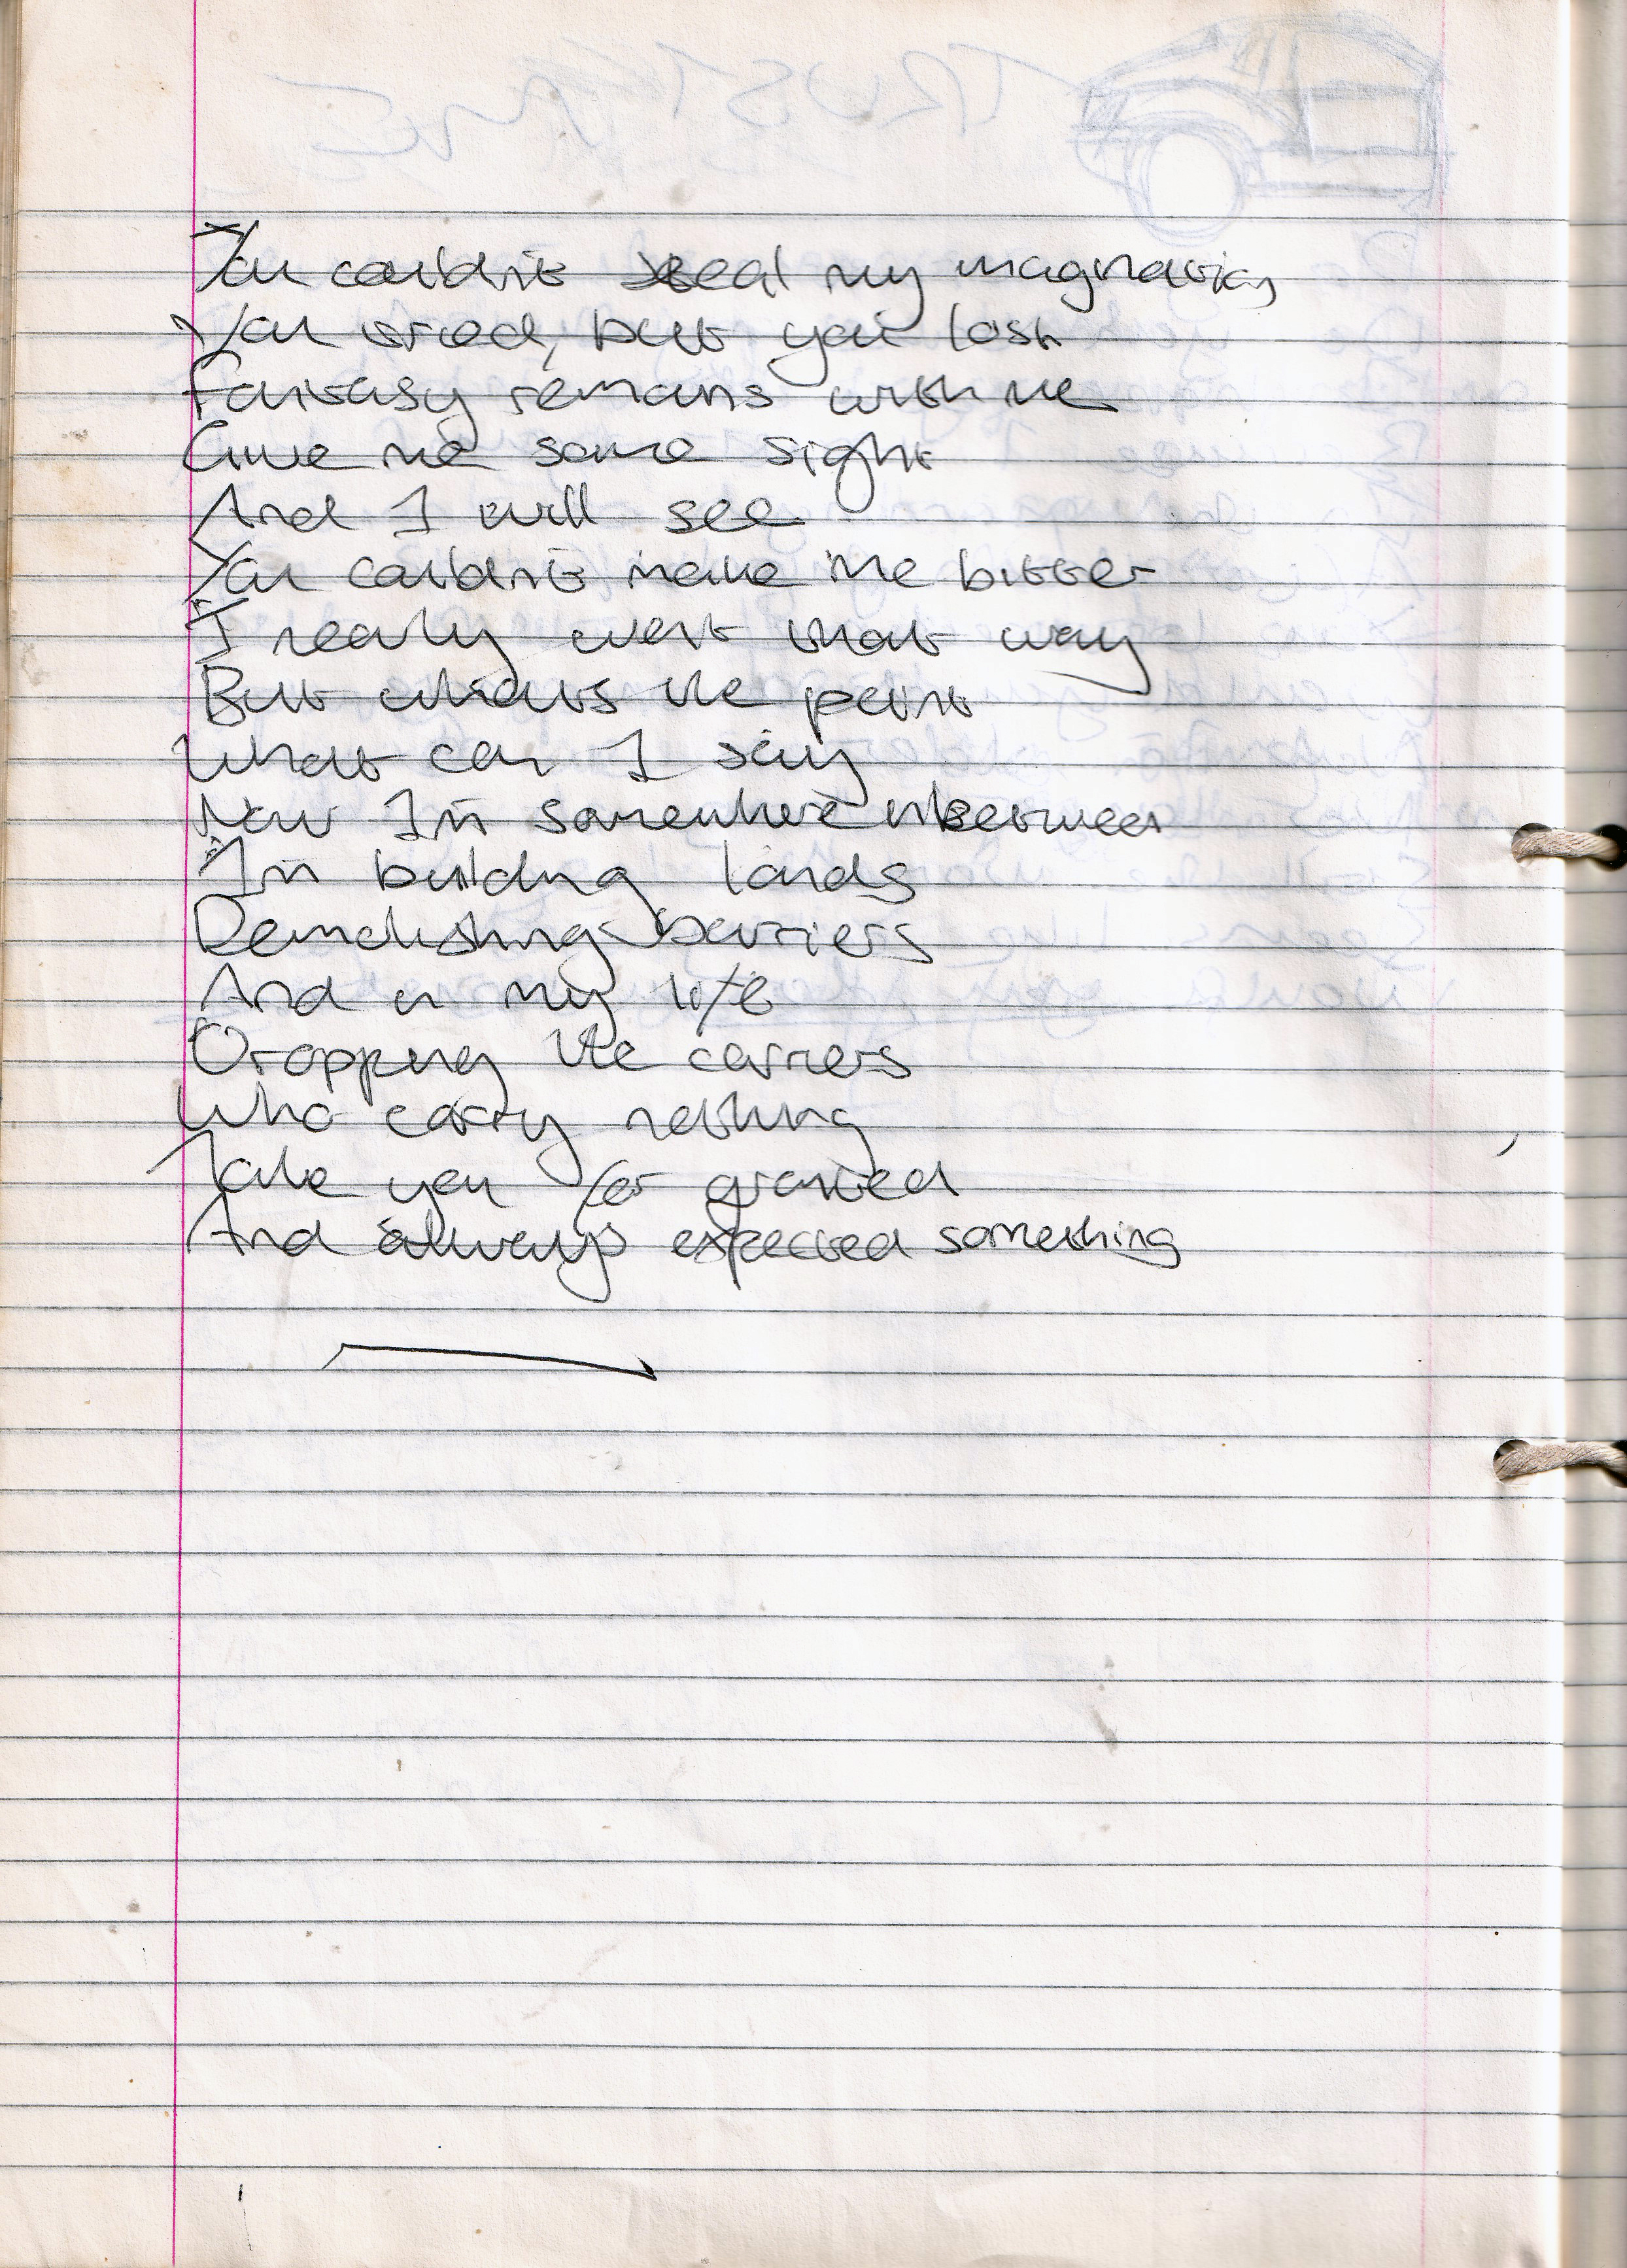 You couldn't steal my imagination
You tried, but you lost
Fantasy remains with me
Give me some sight
And I will see
You couldn't make me bitter
I nearly went that way
But what's the point
What can I say
Now I'm somewhere inbetween
I'm building lands
Demolishing barriers
And in my life
Dropping the carriers
Who carry nothing
Take you for granted
And always expected something
TRUST ME